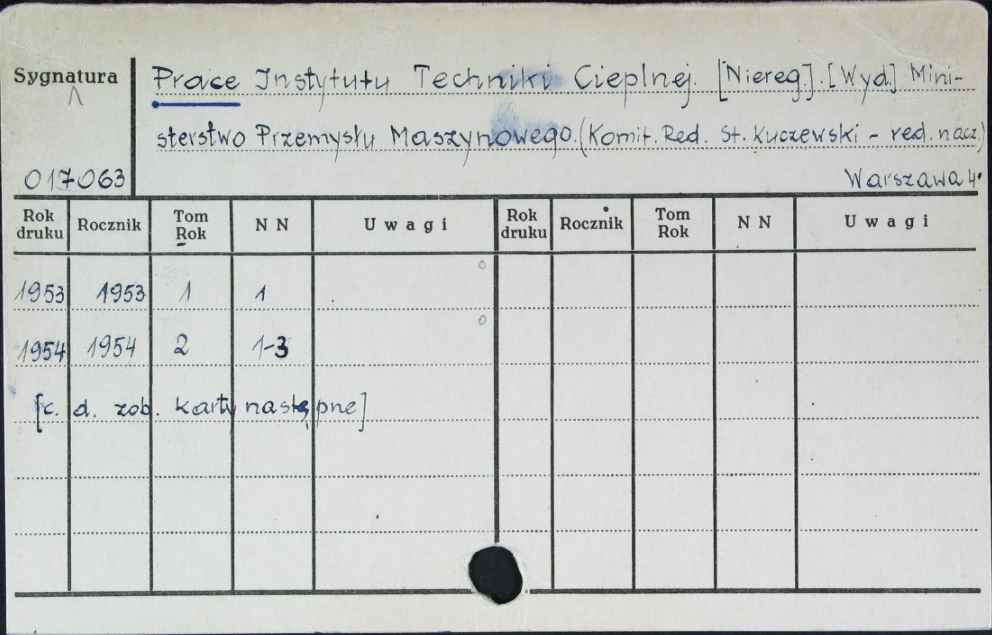 Sygnatura Prace Instytutu Techniki Cieplnej. [Niereg.]. [Wyd.] Mini-
sterstwo Przemysłu Maszynowego. (Komit. Red. St. Kuczewski - red. nacz.)
017063 Warszawa 4°
Rok druku Rocznik Tom Rok N N Uwagi Rok druku Rocznik Tom Rok N N Uwagi
1953 1953 1 1
1954 1954 2 1-3
[c. d. zob. karty następne]